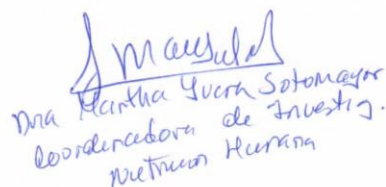 Dra Martha Ivera Sotomayor
Coordinadora de Investig.
Nutricion Humana